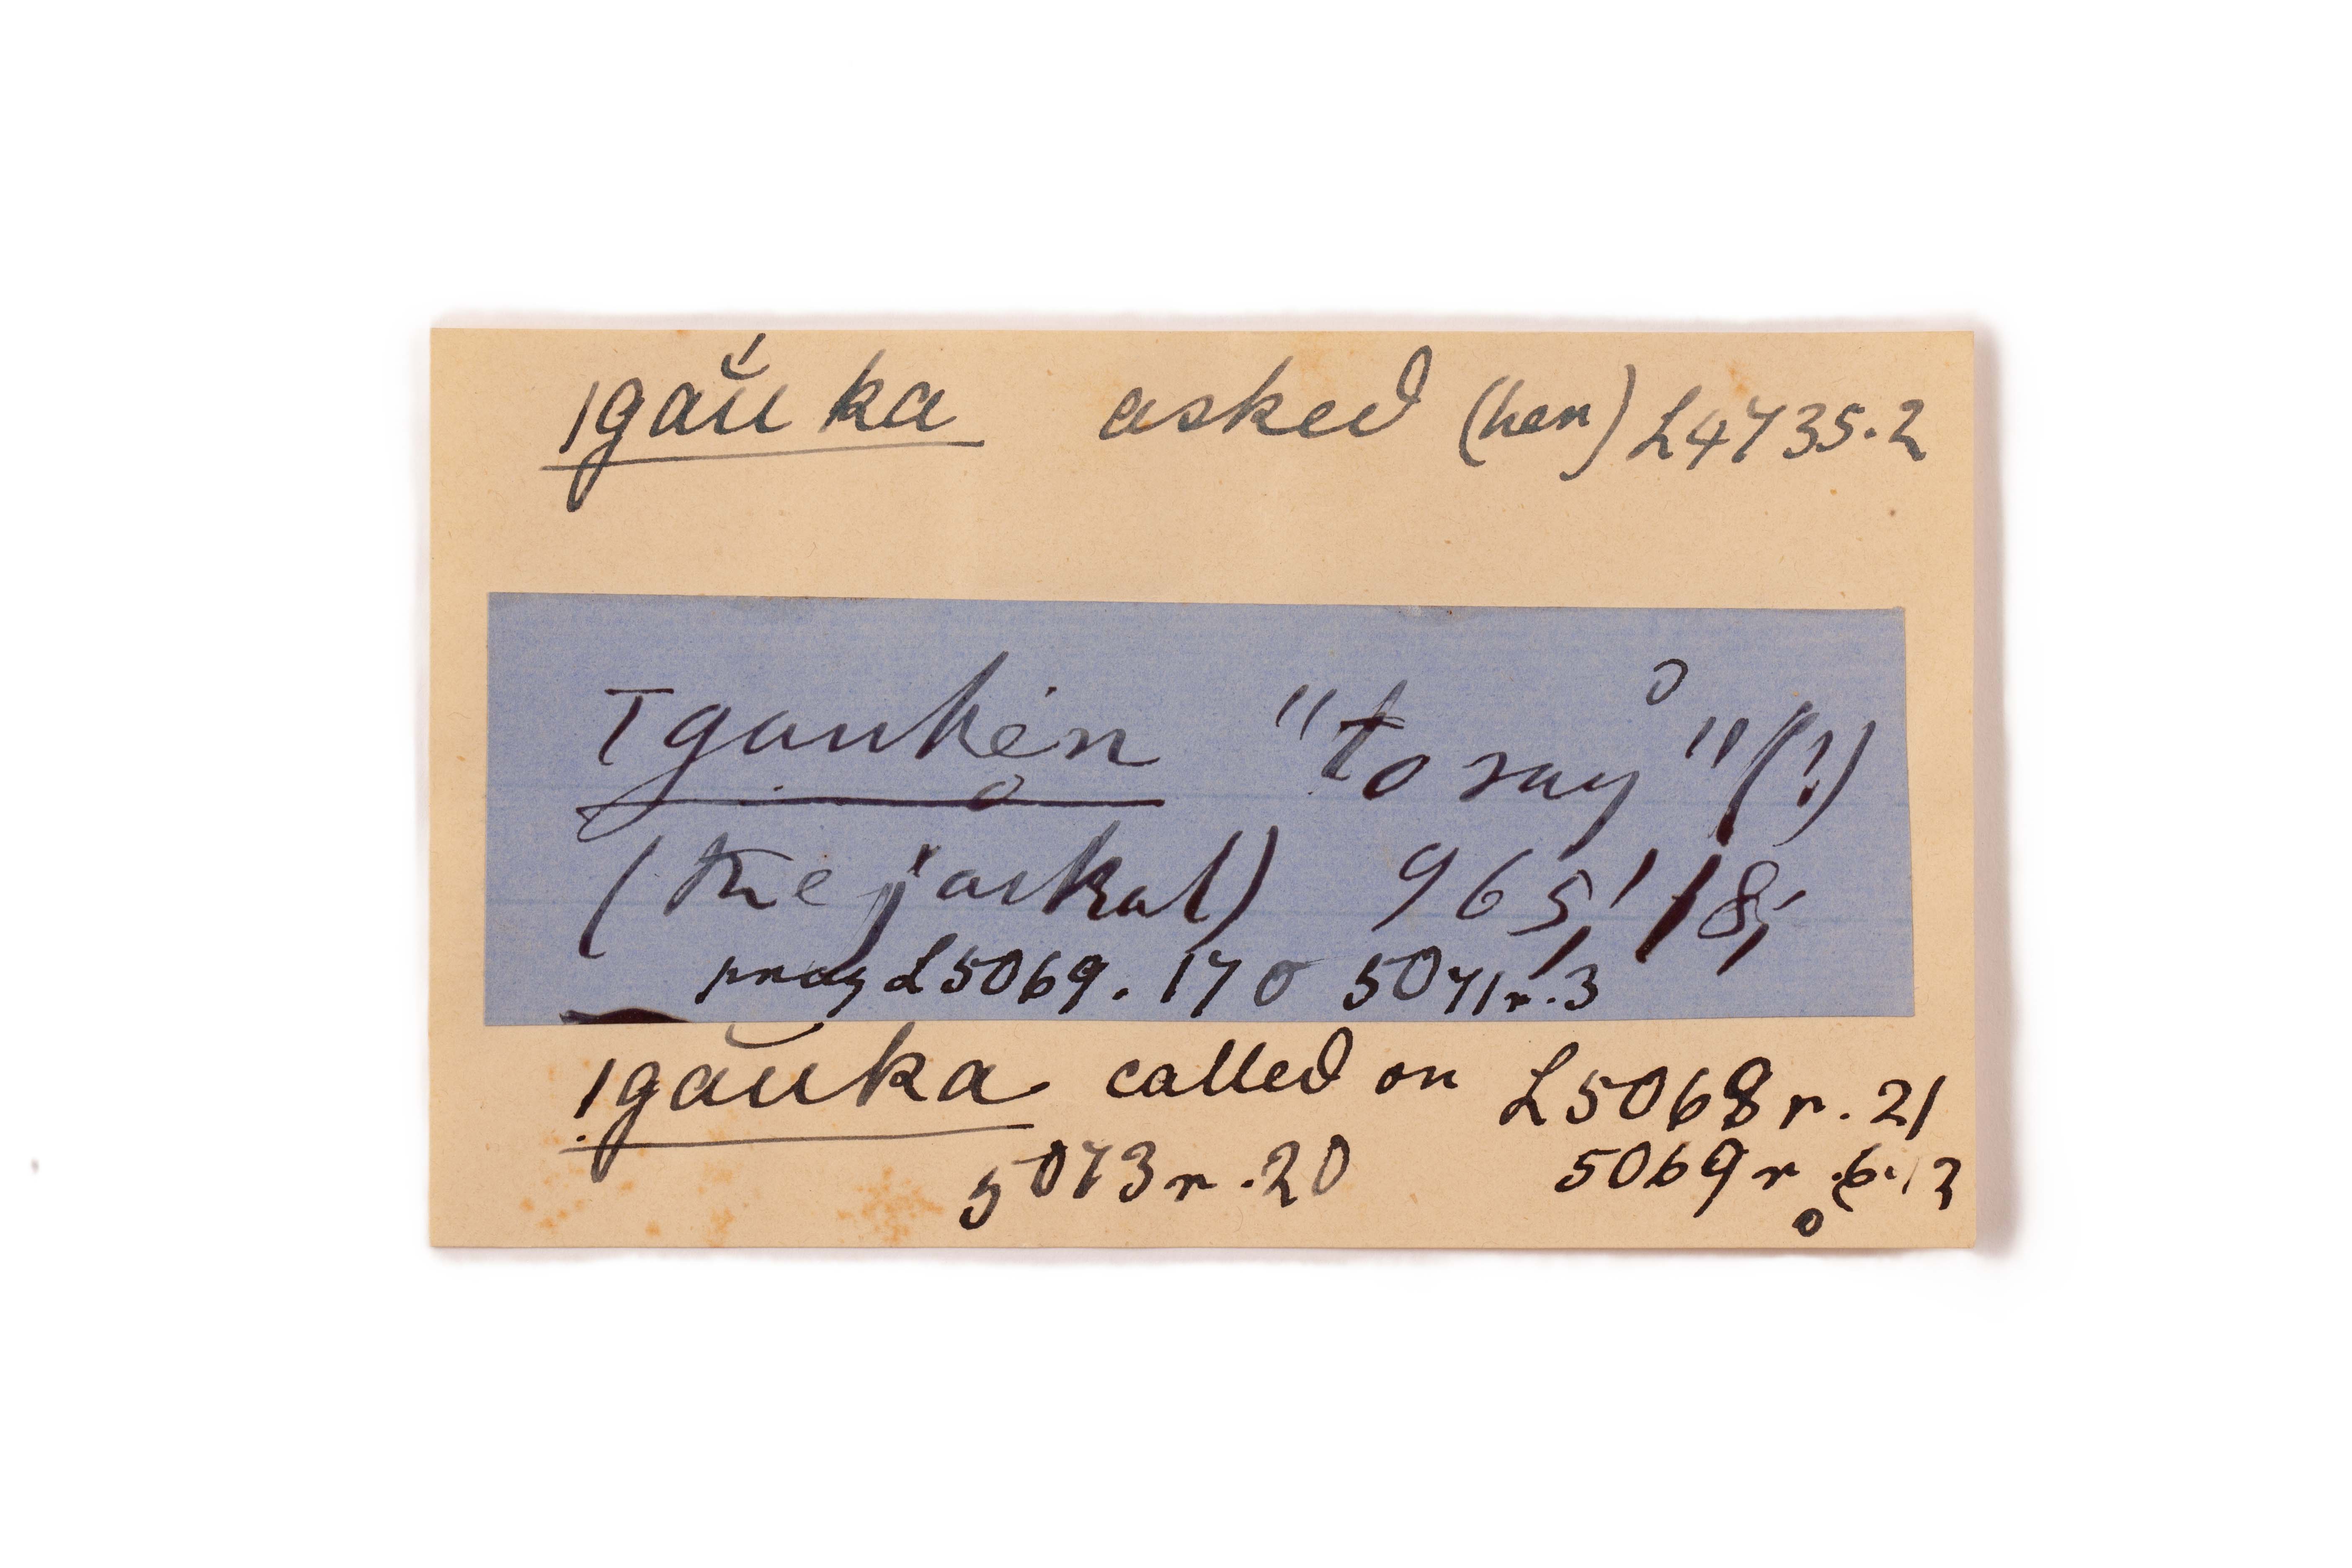 |gắu ka asked (her) L4735.2
T̄gauken "to say" (!)
(the jackal) 965' 18,
pray L5069.17 o 5071r.3
|gău̯ka called on L5068 r. 21
5073 r. 20 5069 r .6. 12